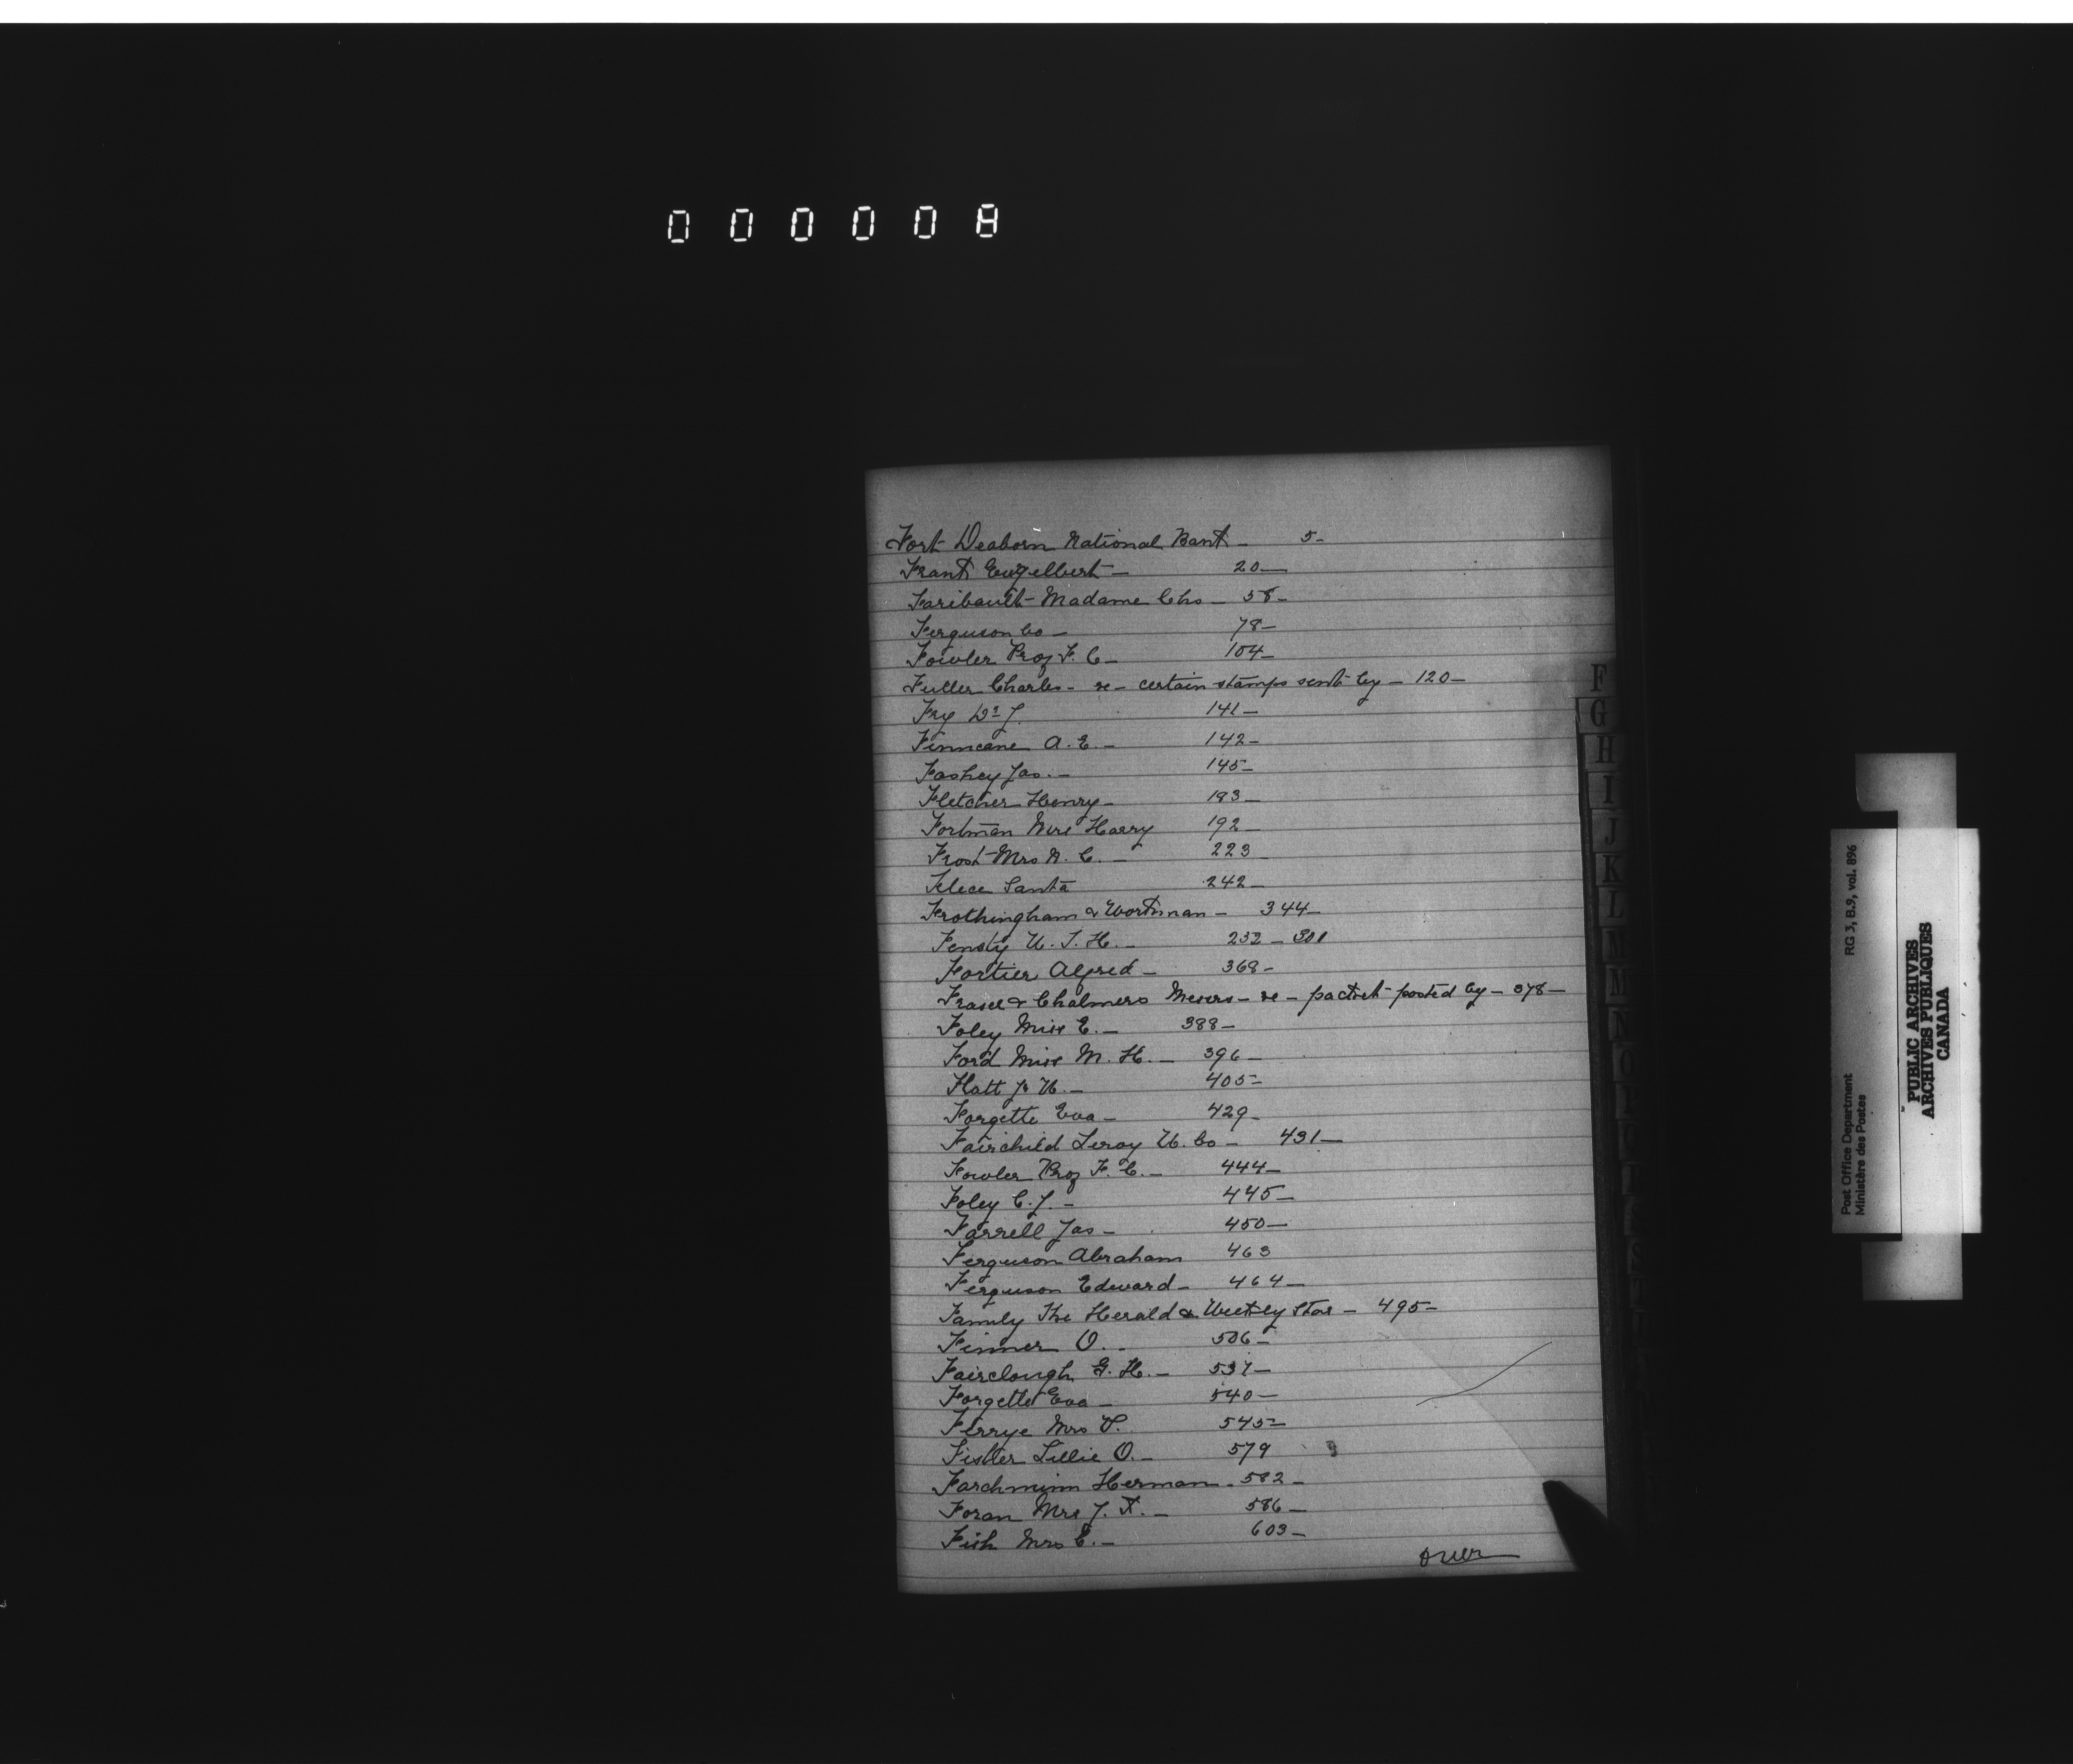 000008
Fort Deaborn National Bank - 5-
Frank Engelbert - 20-
Faribault Madame Chs - 58-
Ferguson Co - 78-
Fowler Prof F. C - 104-
Fuller Charles - re - certain stamps sent by - 120-
Fry Dr J. 141-
Finncane A. E. - 142-
Fashey Jas. - 145-
Fletcher Henry - 183-
Fortman Mrs Harry 192-
Frost Mrs N. C. - 223-
Santa 242-
Frothingham & Workman - 344-
W. J. H. - 232 - 301
Fortier Alfred - 368-
Fraser & Chalmers Messrs - re - packet posted by - 378-
Foley Miss E. - 388-
Ford Miss M. H. - 396-
Flatt J. W. - 405-
Forgette Eva - 429-
Fairchild Leroy W. Co - 431-
Fowler Prof F. C. - 444-
Foley C. J. - 445-
Farrell Jas - 450-
Ferguson Abraham 463
Ferguson Edward - 464-
Family The Herald & Weekly Star - 495-
Finner O. - 506-
Fairclough G. H. - 537-
Forgette Eva - 540-
Ferrye Mrs P. 545-
Fisher Lillie O. - 579
Farchminn Herman - 582-
Foran Mrs J. K. - 586-
Fish Mrs C. - 603-
over
F
G
H
I
J
K
L
M
N
O
Post Office Department RG 3, B.9, vol. 896
Ministère des Postes
PUBLIC ARCHIVES
ARCHIVES PUBLIQUES
CANADA